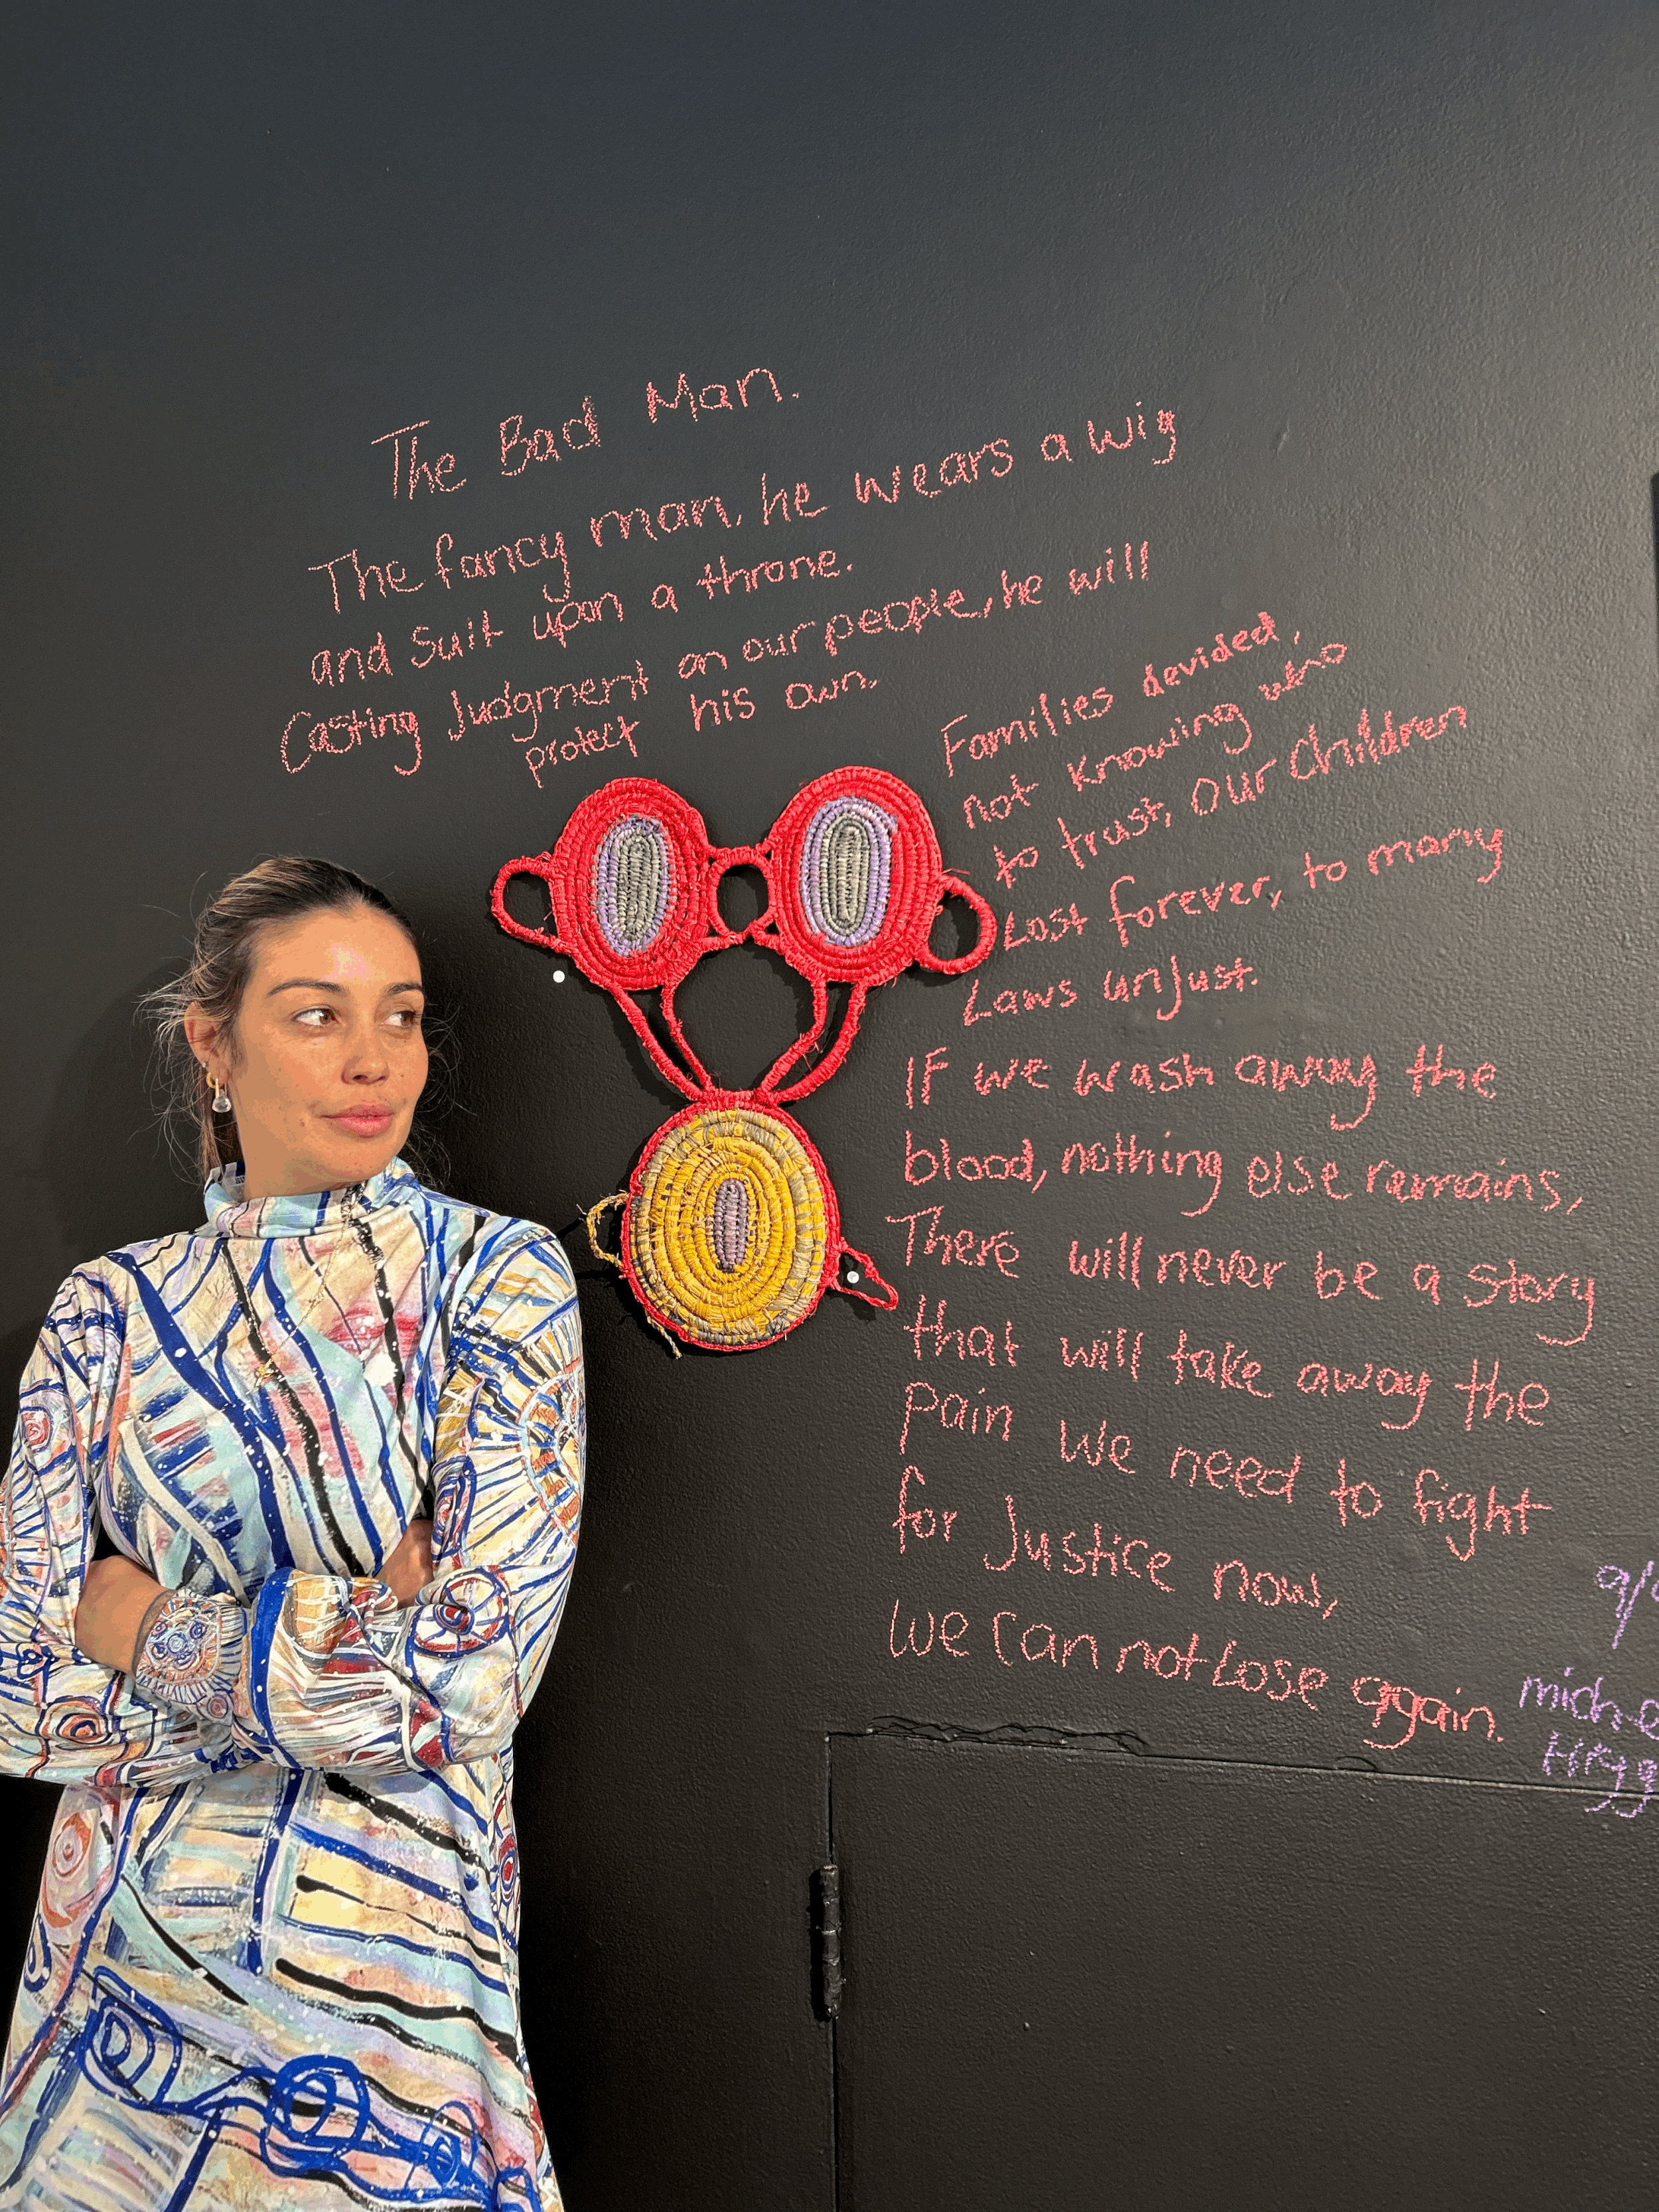 The Bad Man.
The fancy man, he wears a wig
and Suit upon a throne.
Casting Judgment on our people, he will
protect his own.
Families devided,
not knowing who
to trust, Our Children
Lost forever, to many
Laws unjust.
IF we wash away the
blood, nothing else remains,
There will never be a story
that will take away the
pain we need to fight
for Justice now,
we can not Lose again.